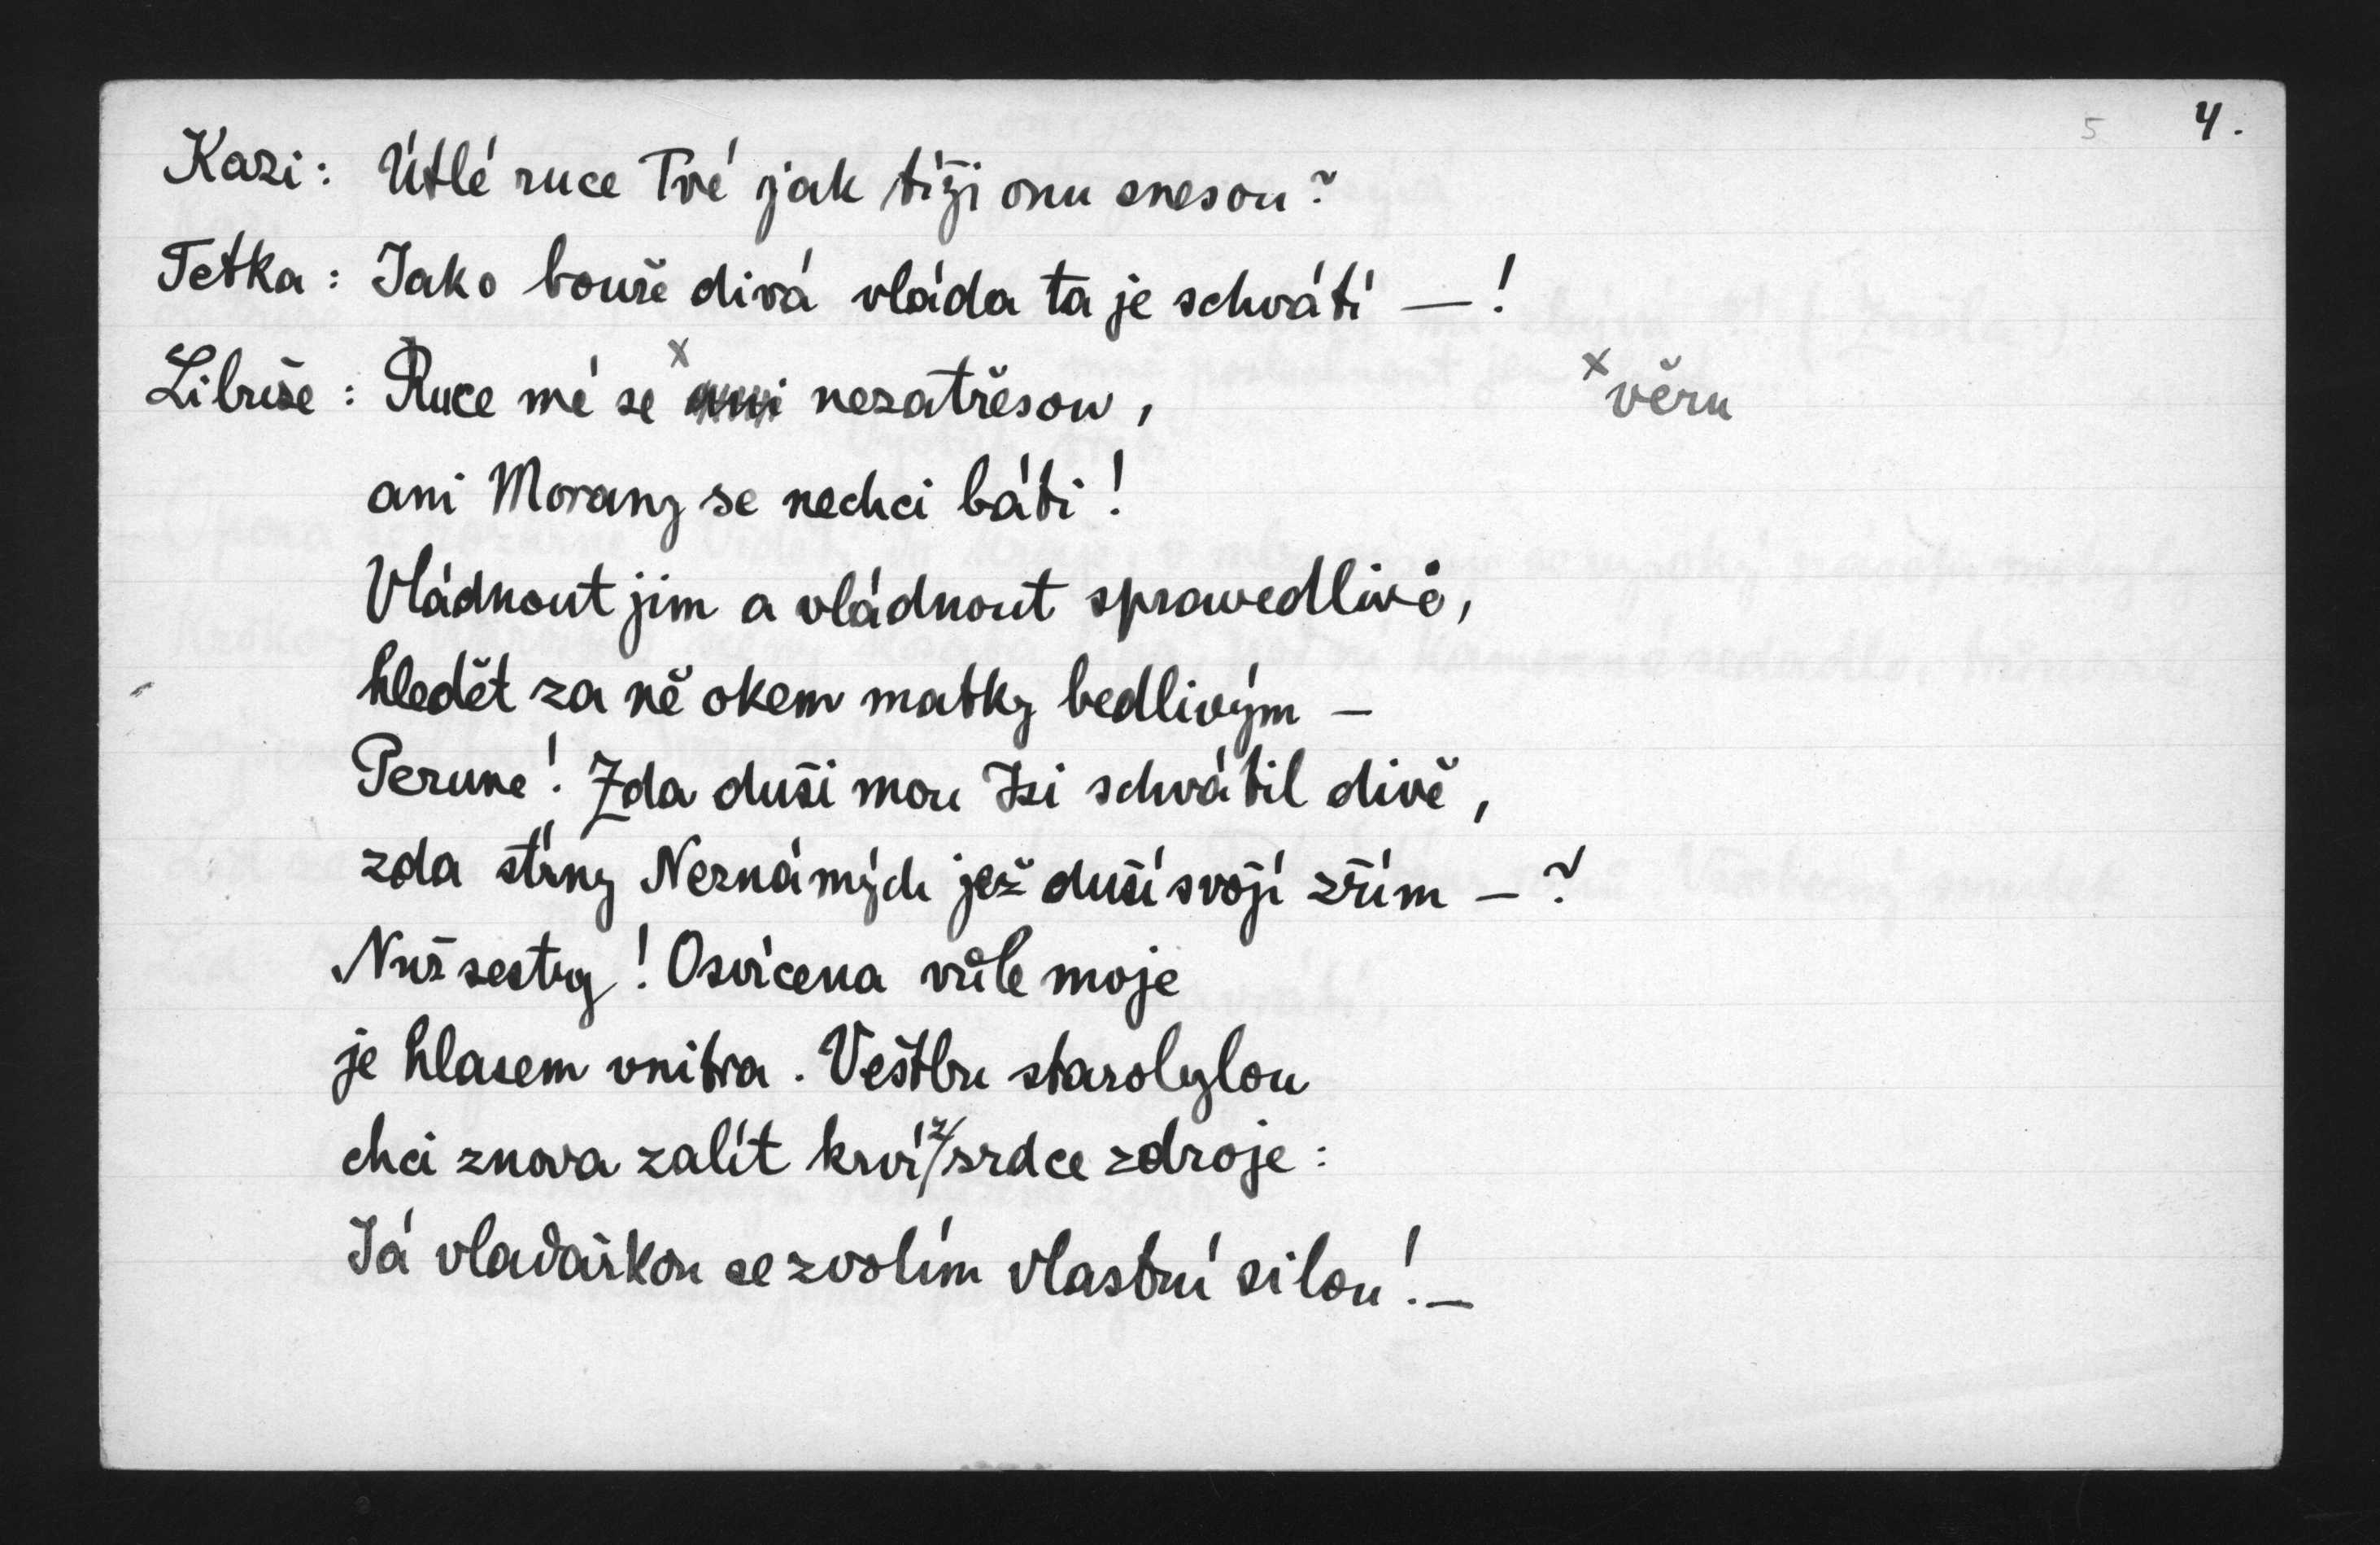 5 4.
Kazi: Útlé ruce Tvé jak tíži onu snesou?
Tetka: Jako bouře divá vláda ta je schvátí —!
Libuše: Ruce mé se x ani nezatřesou, x věru
ani Morany se nechci báti!
Vládnout jim a vládnout spravedlivě,
hledět za ně okem matky bedlivým —
Perune! Zda duši mou Jsi schvátil divě,
zda stíny Neznámých jež duší svojí zřím — ?
Nuž sestry! Osvícena vůle moje
je hlasem vnitra. Veštbu starobylou
chci znova zalít krví z/ srdce zdroje:
Já vladařkou se zvolím vlastní silou! —